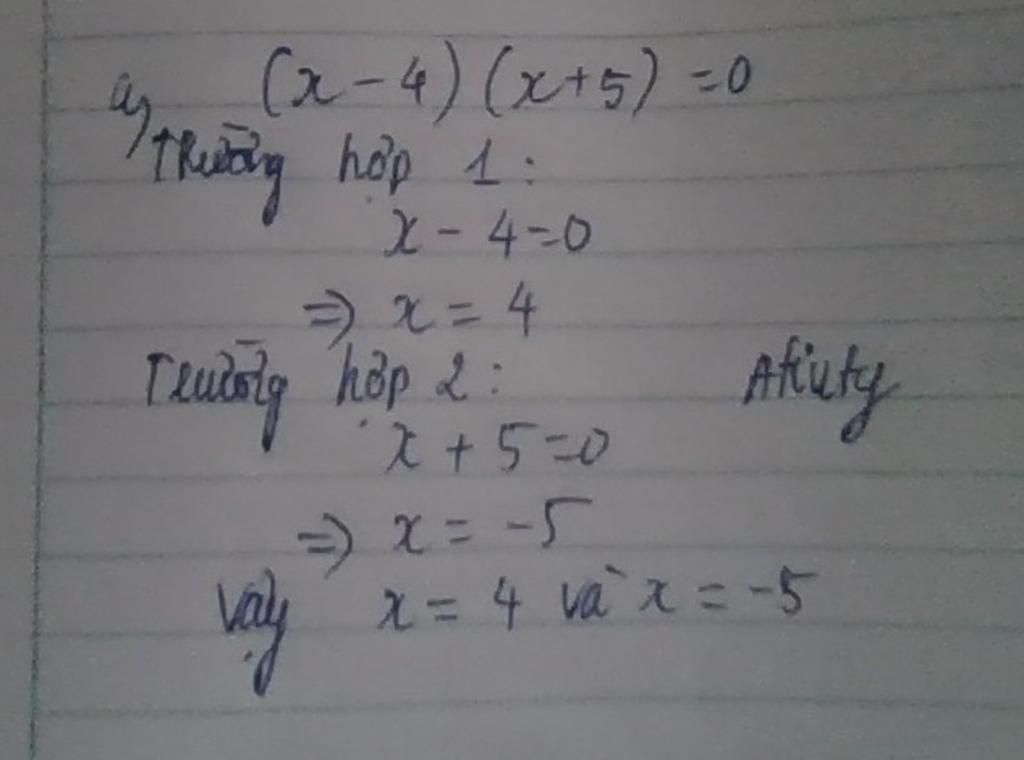 a, (x - 4) (x + 5) = 0
Trường hợp 1 :
x - 4 = 0
=> x = 4
Trường hợp 2 :
Afiuty
x + 5 = 0
=> x = -5
Vậy x = 4 và x = -5